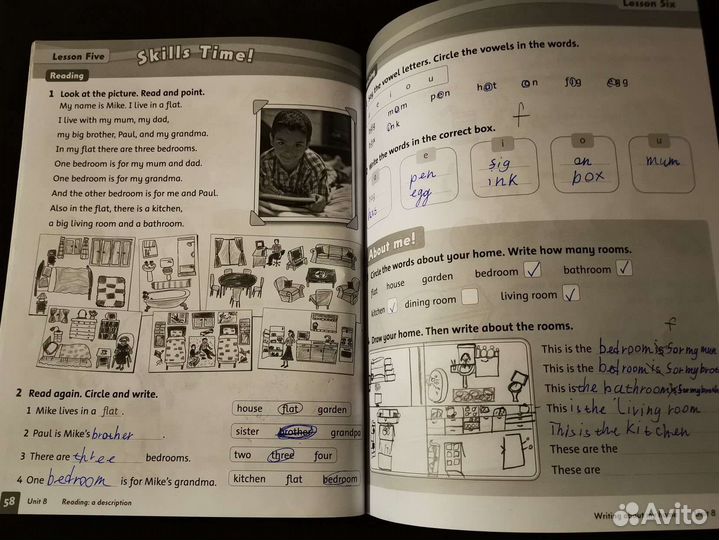 Lesson Five
Skills Time!
Reading
1 Look at the picture. Read and point.
My name is Mike. I live in a flat.
I live with my mum, my dad,
my big brother, Paul, and my grandma.
In my flat there are three bedrooms.
One bedroom is for my mum and dad.
One bedroom is for my grandma.
And the other bedroom is for me and Paul.
Also in the flat, there is a kitchen,
a big living room and a bathroom.
2 Read again. Circle and write.
1 Mike lives in a flat .
house flat garden
2 Paul is Mike's brother .
sister brother grandpa
3 There are three bedrooms.
two three four
4 One bedroom is for Mike's grandma.
kitchen flat bedroom
58 Unit 8 Reading: a description
Lesson Six
the vowel letters. Circle the vowels in the words.
e i o u
mum pen hat on egg
ink
f
write the words in the correct box.
e i o u
pen
egg
ink
on
box
mum
About me!
Circle the words about your home. Write how many rooms.
flat house garden bedroom ✓ bathroom ✓
kitchen ✓ dining room living room ✓
Draw your home. Then write about the rooms.
f
This is the bedroom is for my mum
This is the bedroom is for my brot
This is the bathroom is for my brot
This is the living room
This is the kitchen
These are the
These are
Writing about 8
Avito